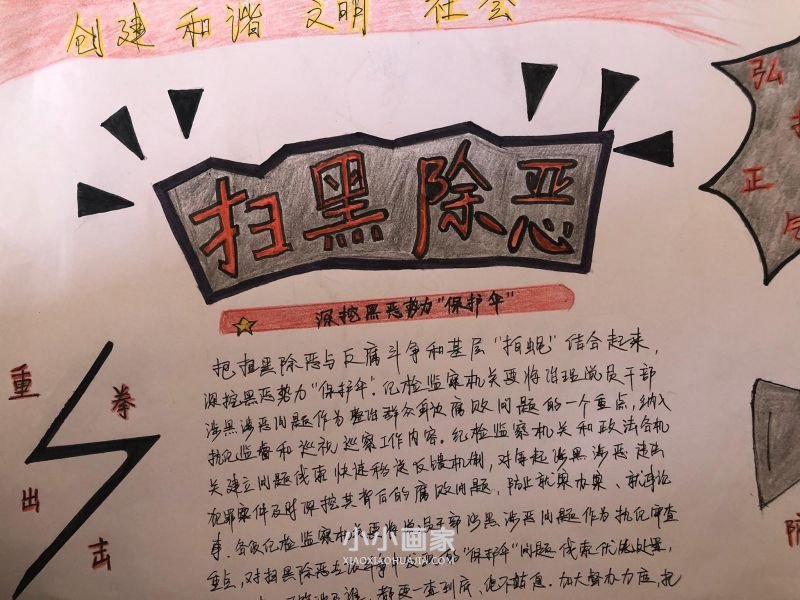 创建 和谐 文明 社会
弘扬
正气
扫黑除恶
深挖黑恶势力"保护伞"
重拳
出击
把扫黑除恶与反腐斗争和基层"拍蝇"结合起来,
深挖黑恶势力"保护伞"。纪检监察机关要将治理党员干部
涉黑涉恶问题作为整治群众身边腐败问题的一个重点,纳入
执纪监督和巡视巡察工作内容。纪检监察机关和政法各机
关建立问题线索快速移送反馈机制,对每起涉黑涉恶违法
犯罪案件及时深挖其背后的腐败问题,防止就案办案、就事论
事。各级纪检监察机关要将党员干部涉黑涉恶问题作为执纪审查
重点,对扫黑除恶 "保护伞"问题线索优先处置,
都要一查到底、绝不姑息。加大督办力度,把
小小画家
XIAOXIAOHUAJIA.COM